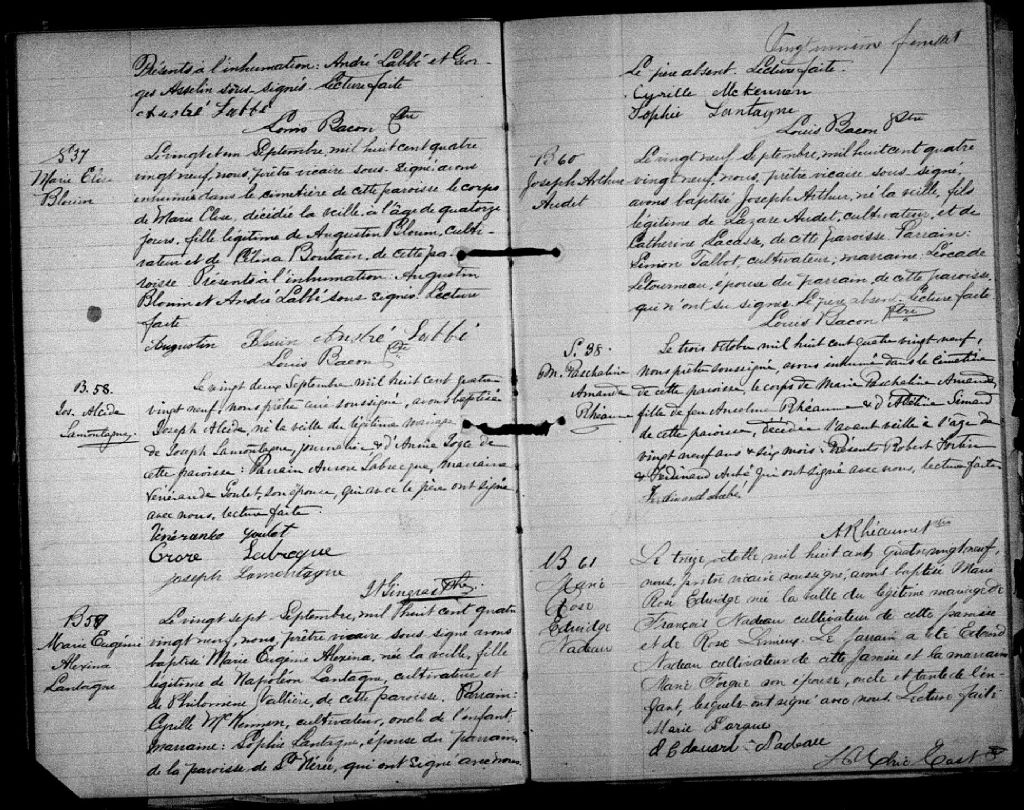 Présents à l'inhumation: André Labbé et Geor-
ges Asselin sous-signés. Lecture faite
André Labbé
Louis Bacon Ptre
S 37
Marie Elise
Blouin
Le vingt et un Septembre, mil huit cent quatre
vingt neuf, nous, prêtre vicaire sous-signé avons
inhumé dans le cimetière de cette paroisse le corps
de Marie Elise, décédée la veille, à l'âge de quatorze
jours, fille légitime de Augustin Blouin, culti-
vateur et de Célina Boutain, de cette pa-
roisse Présents à l'inhumation: Augustin
Blouin et André Labbé sous-signés. Lecture
faite
Augustin Blouin André Labbé
Louis Bacon Ptre
B. 58.
Jos. Alcide
Lamontagne
Le vingt deux Septembre, mil huit cent quatre
vingt neuf, nous prêtre soussigné, avons baptisé
Joseph Alcide, né la veille du légitime mariage
de Joseph Lamontagne, journalier & d'Annie de
cette paroisse: Parrain Aurore Labrecque, marraine
Vénérande Goulet, son épouse, qui avec le père ont signé
avec nous, lecture faite.
Vénérande Goulet
Labreque
Joseph Lamontagne
Gingras Ptre
B 59
Marie Eugénie
Alexina
Lantagne
Le vingt sept Septembre, mil huit cent quatre
vingt neuf, nous, prêtre vicaire sous-signé avons
baptisé Marie Eugénie Alexina, née la veille, fille
légitime de Napoléon Lantagne, cultivateur et
de Philomène Vallière, de cette paroisse. Parrain:
Cyrille McKennen, cultivateur, oncle de l'enfant,
marraine: Sophie Lantagne, épouse du parrain,
de la paroisse de St Nérée, qui ont signé avec nous.
feuillet
Le père absent. Lecture faite.
Cyrille McKennen
Sophie Lantagne
Louis Bacon Ptre
B 60
Joseph Arthur
Audet
Le vingt neuf Septembre, mil huit cent quatre
vingt neuf, nous, prêtre vicaire sous-signé,
avons baptisé Joseph Arthur, né la veille, fils
légitime de Lazare Audet, cultivateur, et de
Catherine Lacasse, de cette paroisse. Parrain:
Simon Talbot, cultivateur; marraine: Léocade
Létourneau, épouse du parrain, de cette paroisse,
qui n'ont su signer. Le père absent. Lecture faite
Louis Bacon Ptre
S. 38.
M. Paschaline
Amanda
Rhéaume
Le trois Octobre mil huit cent quatre vingt neuf,
nous prêtre soussigné, avons inhumé dans le cimetière
de cette paroisse, le corps de Marie Paschaline Amanda,
fille de feu Anselme Rhéaume & d'Adeline Simard
de cette paroisse, décédée l'avant veille à l'âge de
vingt neuf ans & six mois: Présents Robert Fortin
& Ferdinand qui ont signé avec nous, lecture faite
Ferdinand
A Rhéaume Ptre
B 61
Marie
Rose
Edwidge
Nadeau
Le treize octobre mil huit cent quatre vingt neuf,
nous, prêtre vicaire soussigné, avons baptisé Marie
Rose Edwidge née la veille du légitime mariage de
François Nadeau cultivateur de cette paroisse
et de Rose Limieux. Le parrain a été Edouard
Nadeau cultivateur de cette paroisse et la marraine
Marie Forgue son épouse, oncle et tante de l'en-
fant, lesquels ont signé avec nous. Lecture faite
Marie Forgue
Edouard Nadeau